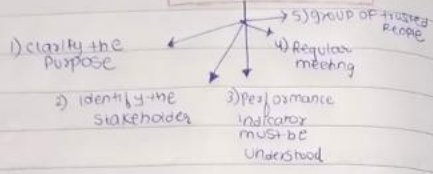 1) clarify the
purpose
2) identify the
stakeholder
3) performance
indicator
must be
understood
4) Regular
meeting
5) group of trusted
people